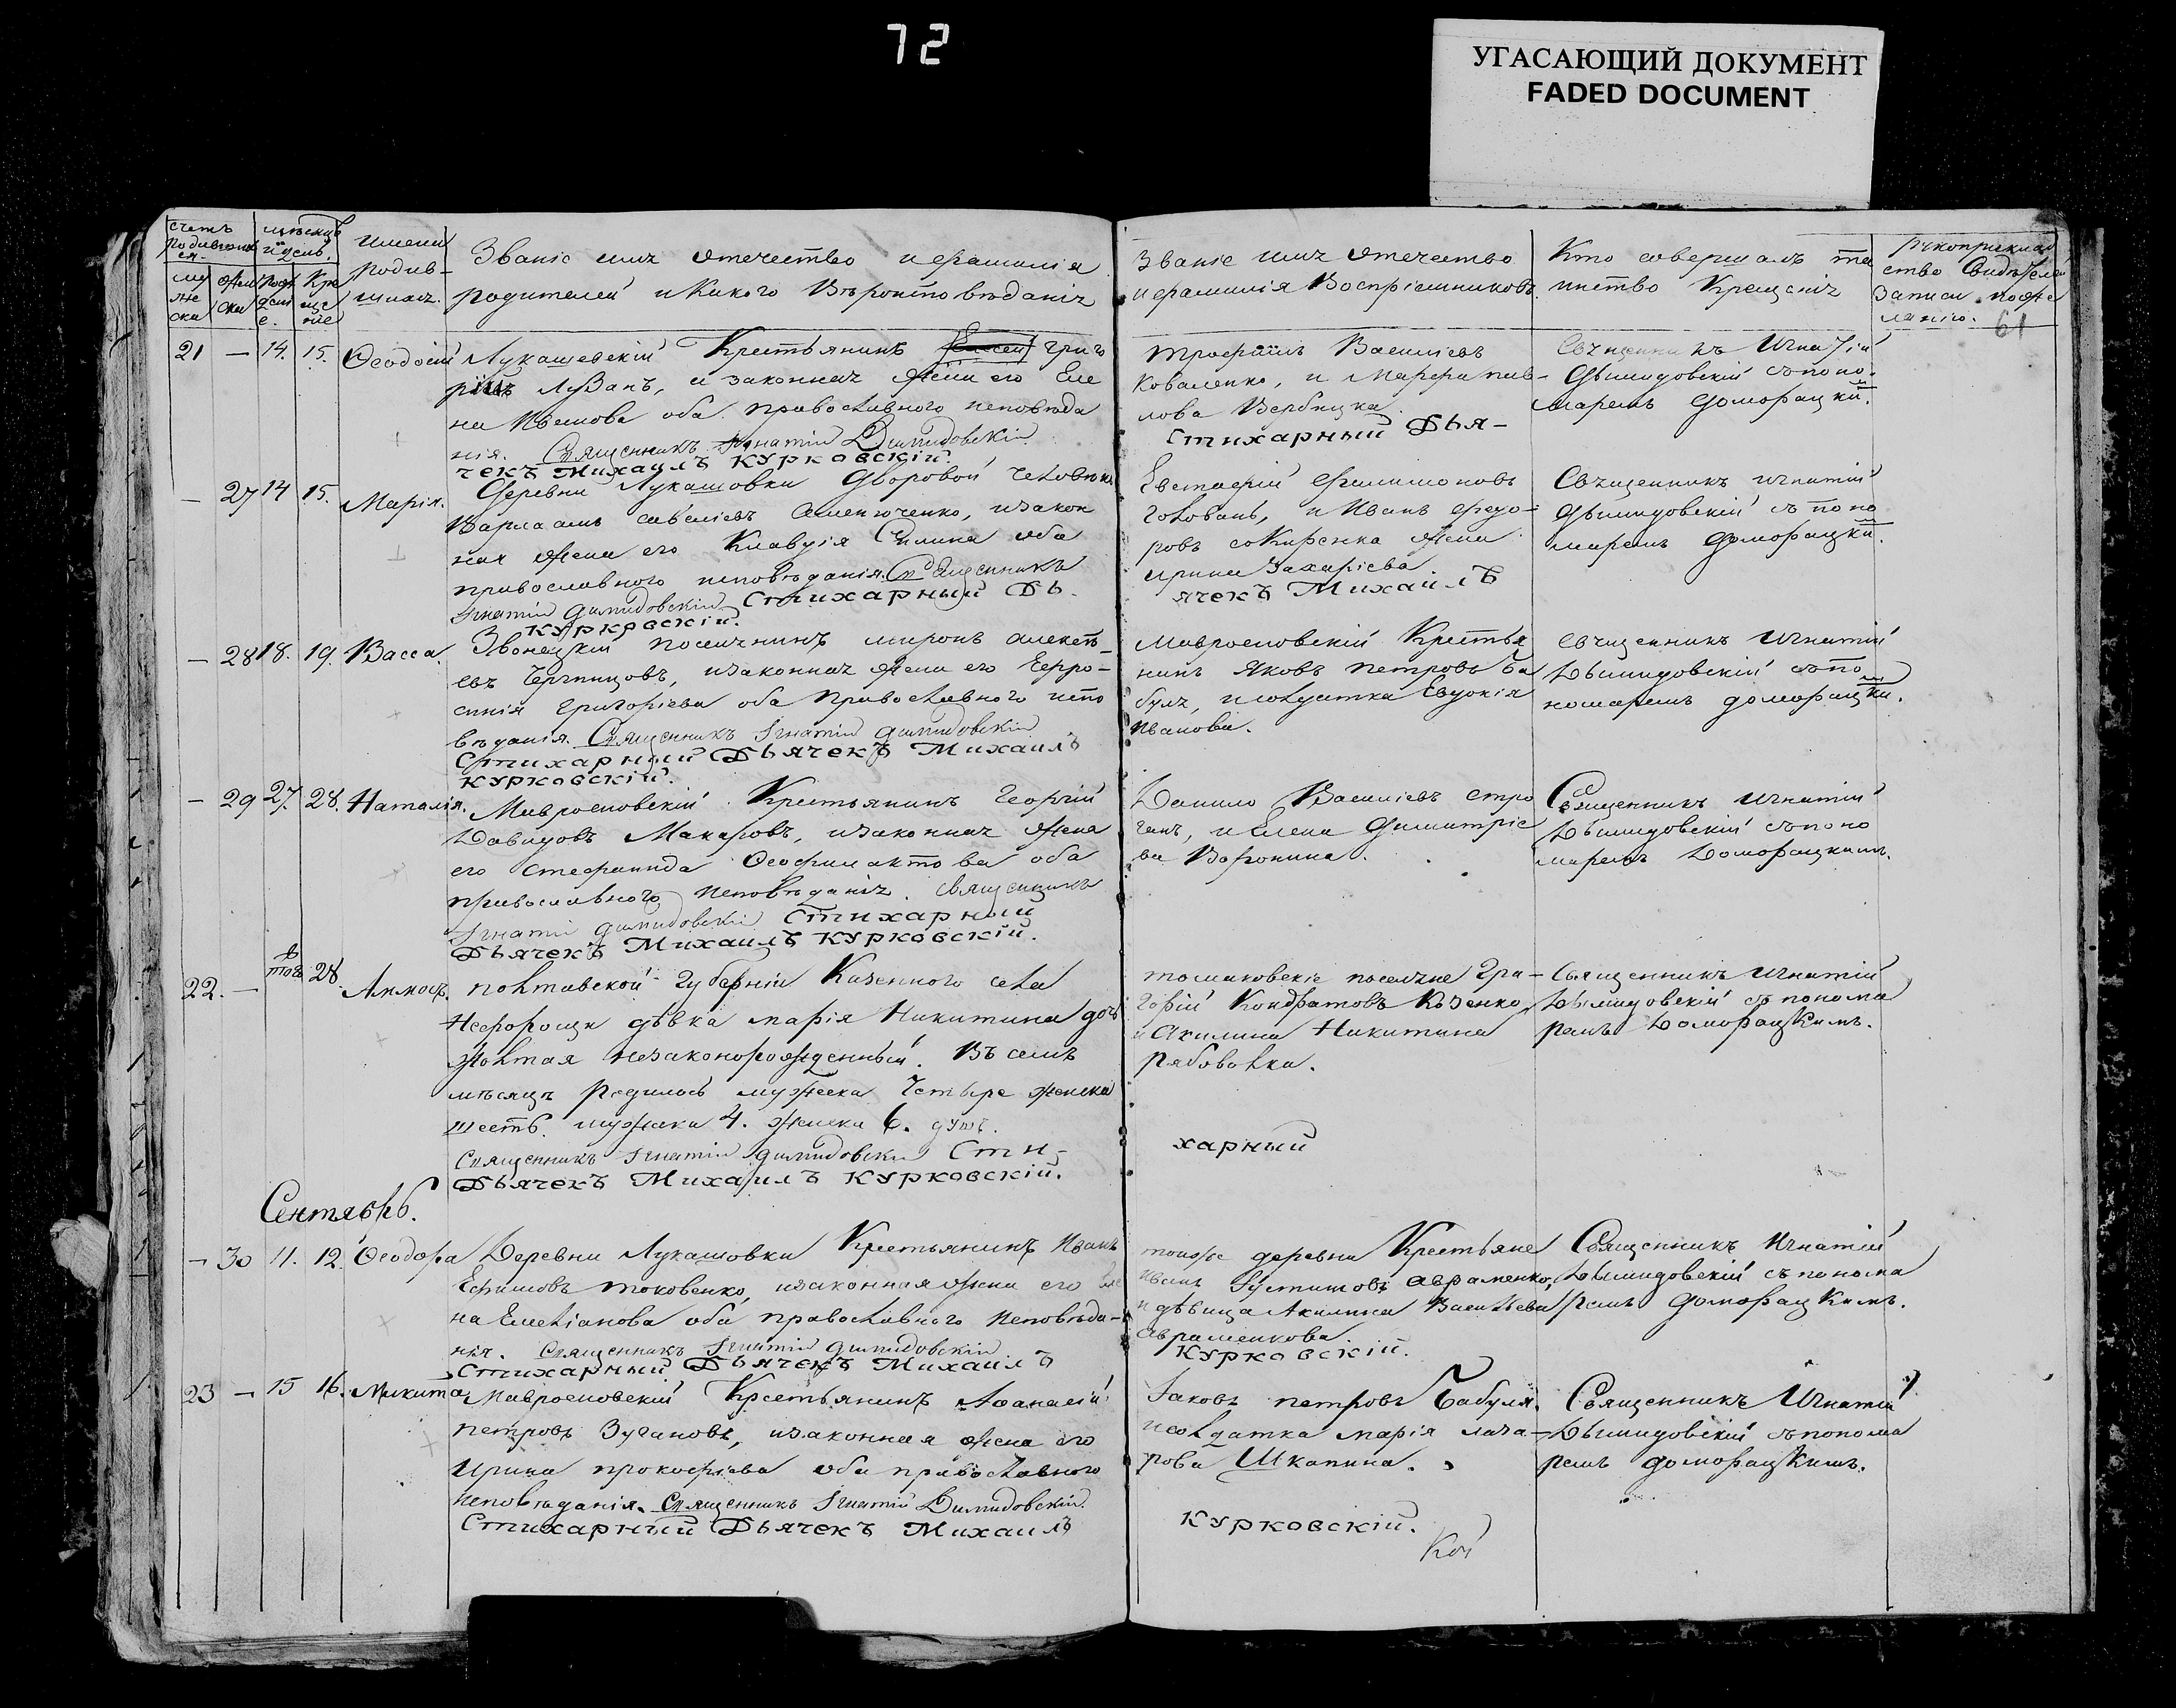 72
УГАСАЮЩИЙ ДОКУМЕНТ
FADED DOCUMENT
счетъ родившихся.
мѣсяцъ и день.
имена родив-
шихся.
Званіе имя отечество и фамилія
родителей и Какого Вѣроисповѣданія
Званіе имя отечество
и фамилія Воспріемниковъ.
Кто совершалъ таинство Крещенія
рукоприклад
ство Свидѣтелей
Записи по же
ланію.
61
21 — 14. 15. Ѳеодосій Лукашевскій Крестьянинъ Григо
рій Лузанъ, и законная жена его Еле
на Ивгнова оба православного исповѣда
нія. Священникъ Игнатій Димидовскій
чекъ Михаилъ Курковскій.
Трофимъ Василіевъ
Коваленко, и Марфа пав-
лова Вербицка.
Стихарный Дья-
Священникъ Игнатій
Дѣмидовскій съ поно-
маремъ Доморацки.
— 27 14 15. Марія. Деревни Лукашовки Дворовой человѣкъ
Варлаамъ савеліевъ Семенюченко, и закон
ная жена его Клавдія Силина оба
православного исповѣданія. Священникъ
Игнатій Димидовскій Стихарный Дь.
Курковскій.
Евстафій Филимоновъ
Головань, и Иванъ Федо-
ровъ сокиренка жена
ирина Захаріева
ячекъ Михаилъ
Священникъ игнатій
Дѣмидовскій съ поно
маремъ Доморацки.
— 28 18. 19. Васса. Звонецкій поселянинъ миронъ алексѣ-
евъ Черницовъ, и законная жена его Евро-
синія Григоріева оба Православного испо
вѣданія. Священникъ Игнатій Димидовскій
Стихарный Дьячекъ Михаилъ
Курковскій.
Мавроеновскій Крестья
нинъ Яковъ Петровъ Ба
буля, и солдатка Евдокія
Иванова.
священникъ Игнатій
Дѣмидовскій съ по
номаремъ доморацки.
— 29 27. 28. Наталія. Мавроеновскій Крестьянинъ Георгій
Давидовъ Макаровъ, и законная жена
его стефанида Ѳеофилактова оба
православного исповѣданія. священникъ
Игнатій Димидовскій Стихарный
Дьячекъ Михаилъ Курковскій.
Данило Василіевъ Стро
ганъ, и Елена Димитріе
ва Воронина.
Священникъ Игнатій
Дѣмидовскій съ поно
маремъ Доморацкимъ.
22. — 28. Аммосъ. Полтавской Губерніи Казенного села
Нефорощи дѣвка марія Никитина дочь
Жолтая незаконорожденный. Въ семъ
мѣсяцѣ Родилось мужеска Четыре женска
шесть. мужска 4. женска 6. душъ.
Священникъ Игнатій Димидовскій Сти-
Дьячекъ Михаилъ Курковскій.
томаковски поселяне Гри-
горій Кондратовъ Козенко,
и Акилина Никитина
Рябоволка.
харный
Священникъ Игнатій
Дѣмидовскій съ понома
ремъ Доморацкимъ.
Сентябрь.
— 30 11. 12. Ѳеодора Деревни Лукашовки Крестьянинъ Иванъ
Ефимовъ токовенко, и законная жена его Еле
на Емеліанова оба православного исповѣда-
нія. Священникъ Игнатій Димидовскій
Стихарный Дьячекъ Михаилъ
тоиже деревни Крестьяне
Иванъ Густиновъ Авраменко,
и дѣвица Акилина Васильева
Авраменкова.
Курковскій.
Священникъ Игнатій
Дѣмидовскій съ понома
ремъ Доморацкимъ.
23 — 15 16. Микита Мавроеновскій Крестьянинъ Аѳанасій
петровъ Зугановъ, и законная жена его
Ирина прокофіева оба православного
исповѣданія. Священникъ Игнатій Димидовскій.
Стихарный Дьячекъ Михаилъ
Іаковъ петровъ Бабуля.
и солдатка марія лаза-
рова Шкапина.
Курковскій.
Священникъ Игнатій
Дѣмидовскій съ понома
ремъ доморацкимъ.